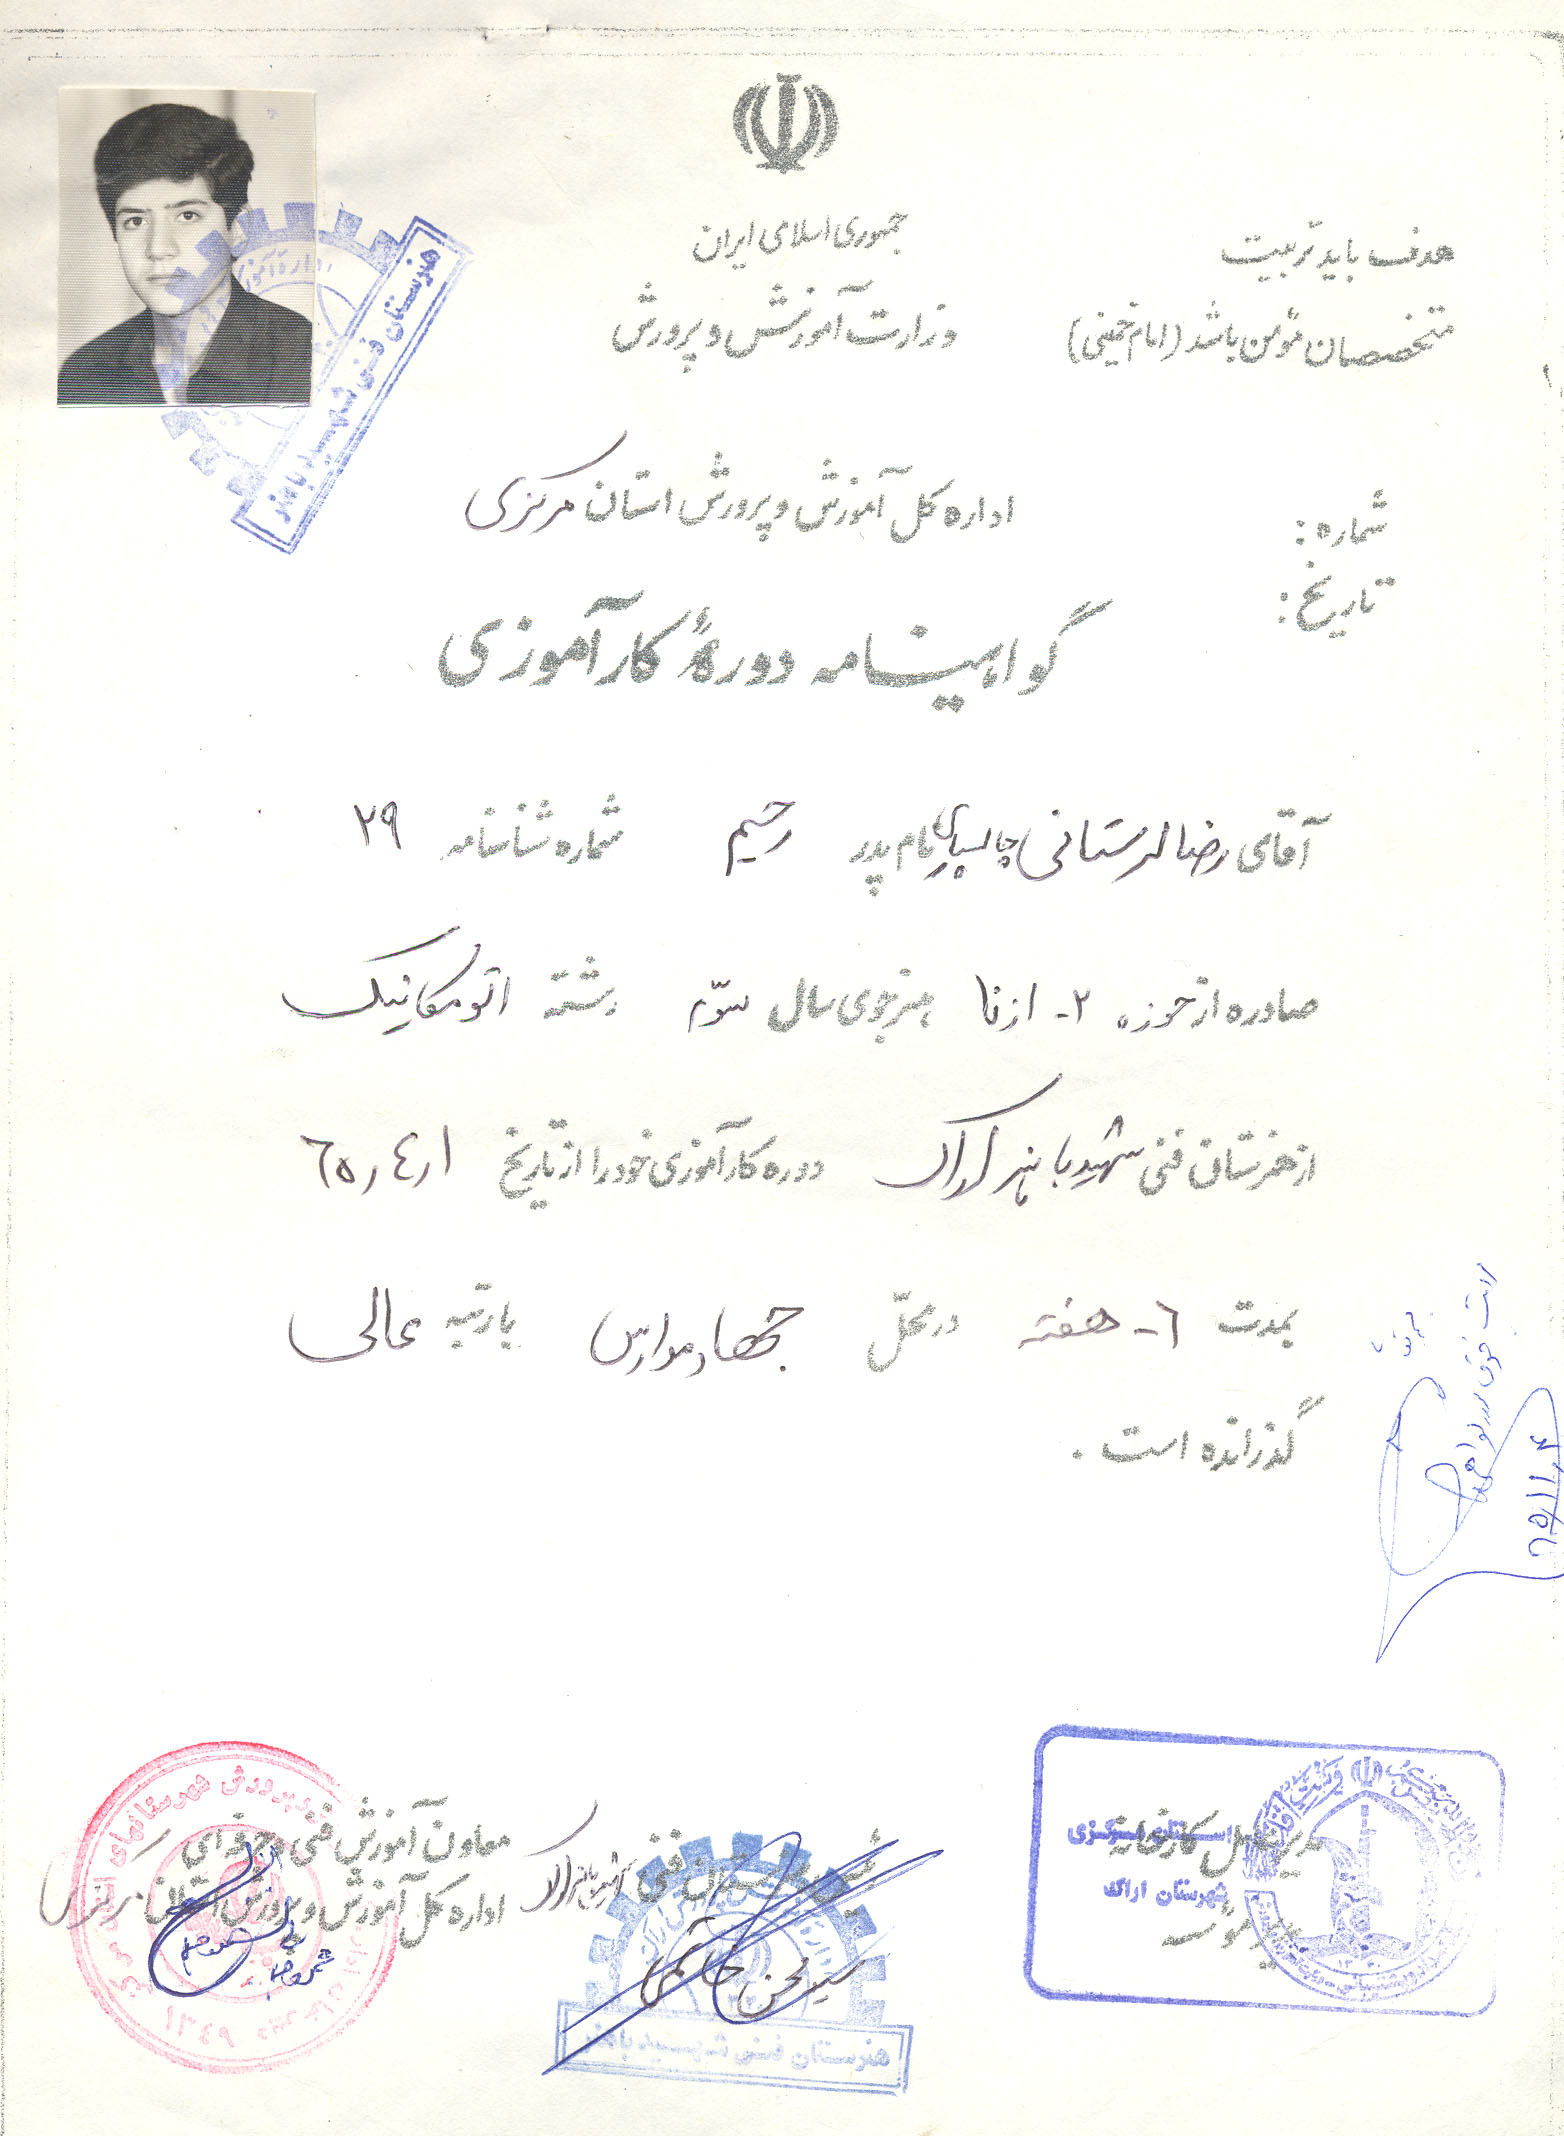 جمهوری اسلامی ایران
وزارت آموزش و پرورش
هدف باید تربیت
متخصصان مؤمن باشد (امام خمینی)
هنرستان فنی شهید باهنر
اداره کل آموزش و پرورش استان مرکزی
شماره:
تاریخ:
گواهینامه دورهٔ کارآموزی
آقای رضا لرستانی نام پدر رحیم شماره شناسنامه ۲۹
صادره از حوزه ۲- ازنا هنرجوی سال سوّم رشته اتومکانیک
از هنرستان فنی شهید باهنر اراک دوره کارآموزی خود را از تاریخ ۶۵٫۴٫۱
بمدت ۶- هفته در محلّ با رتبه عالی
گذرانده است .
معاون آموزش فنی و حرفه‌ای
اداره کل آموزش و پرورش استان مرکزی
رئیس هنرستان فنی شهید باهنر اراک
سید محسن
هنرستان فنی شهید باهنر
استان مرکزی
شهرستان اراک